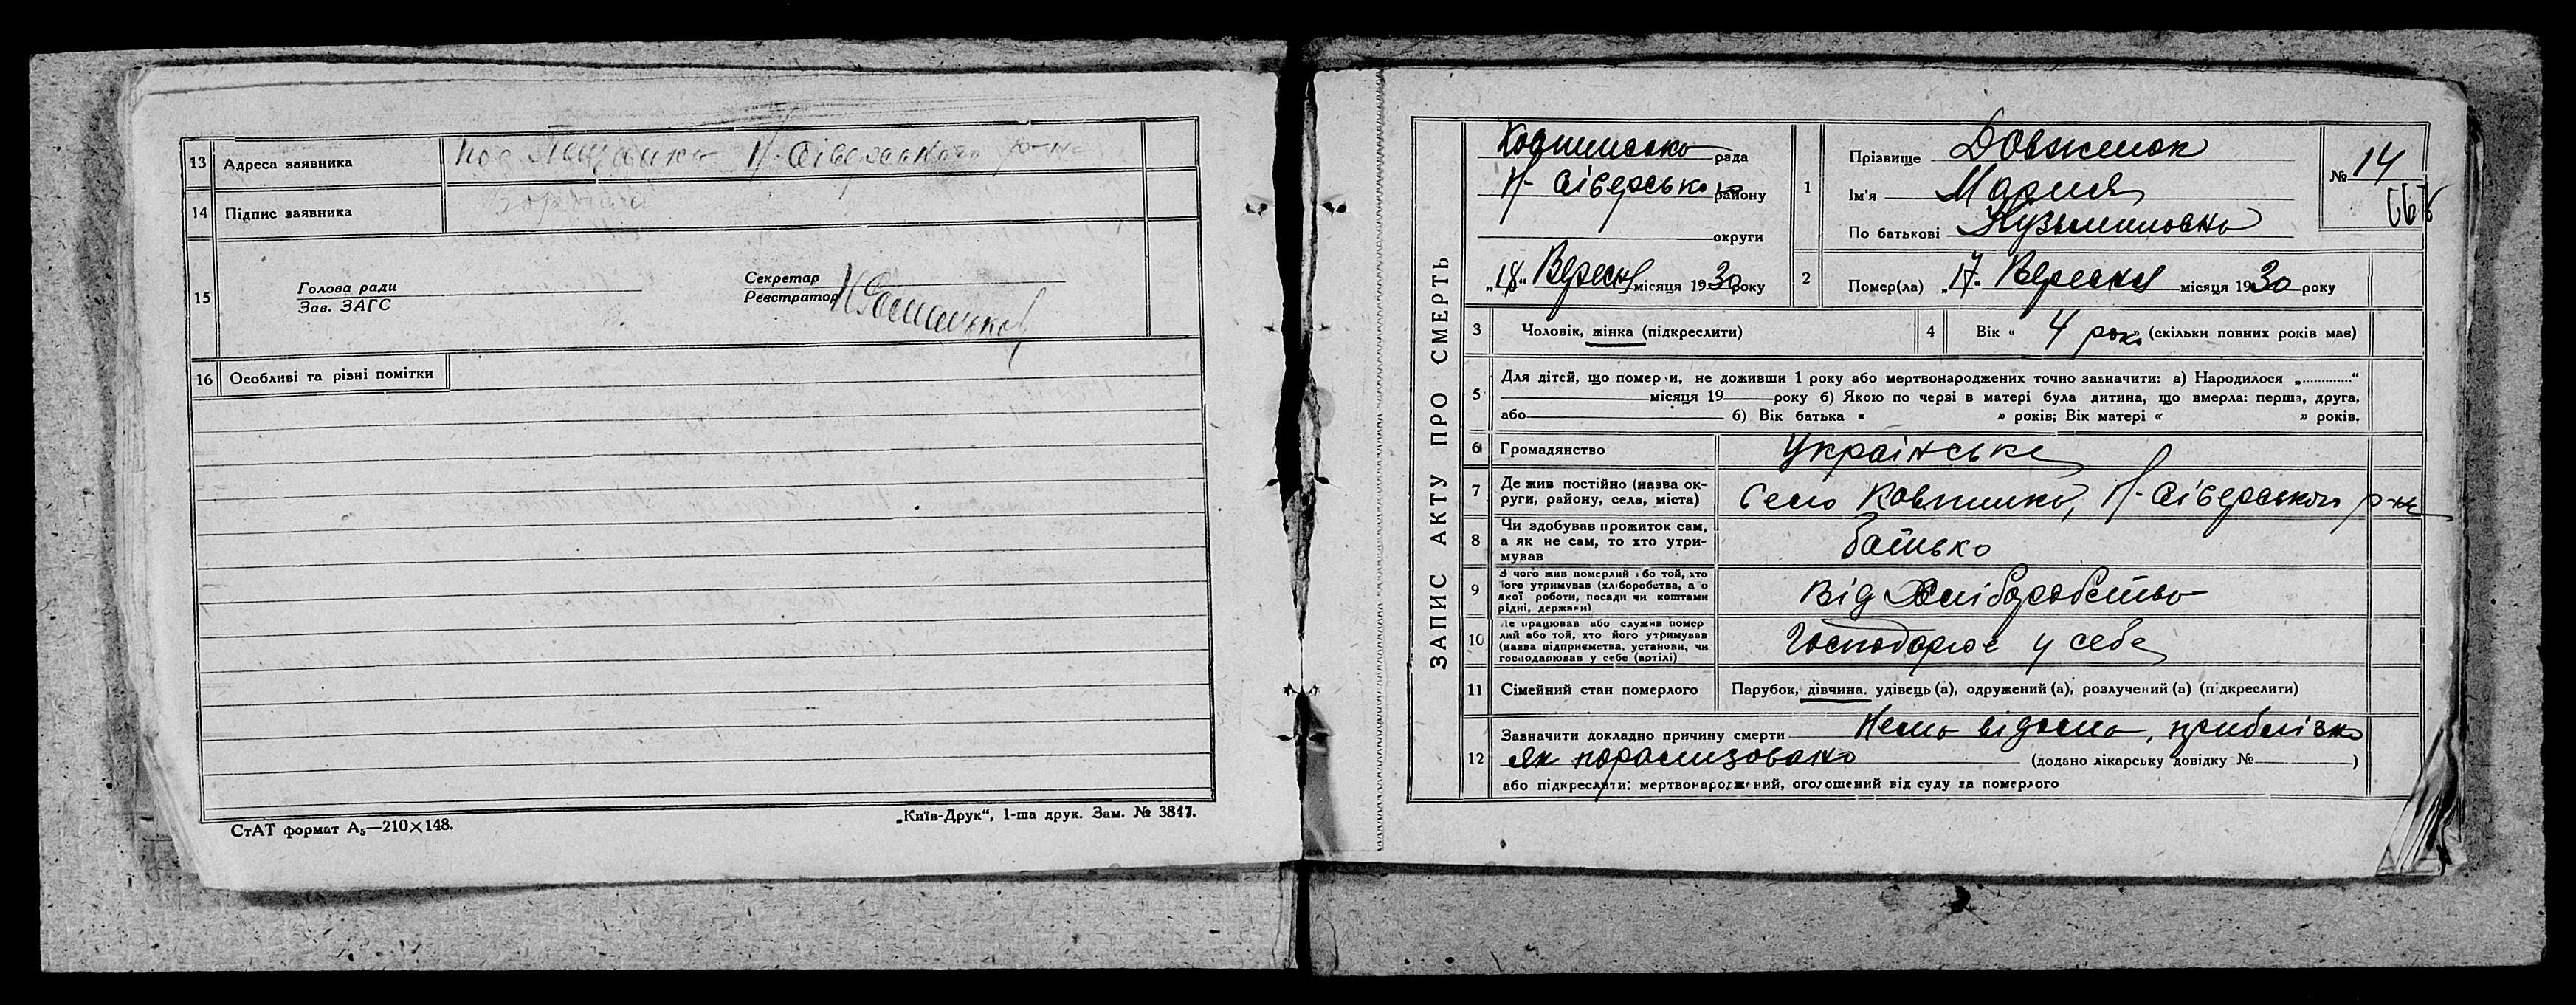 13 Адреса заявника Н-Сіверського р-на
14 Підпис заявника
15 Голова ради
Зав. ЗАГС
Секретар
Реєстратор
16 Особливі та різні помітки
СтАТ формат А₅—210×148.
„Київ-Друк“, 1-ша друк. Зам. № 3847.
ЗАПИС АКТУ ПРО СМЕРТЬ
рада
Н-Сіверсько району
округи
„18“ Вересня місяця 1930 року
1 Прізвище Довженок
Ім'я Мария
По батькові Кузьминовна
№ 14
2 Помер(ла) „17“ Вересня місяця 1930 року
3 Чоловік, жінка (підкреслити)
4 Вік “ 4 рок. (скільки повних років має)
5 Для дітей, що померли, не доживши 1 року або мертвонароджених точно зазначити: а) Народилося „............“
місяця 19 року б) Якою по черзі в матері була дитина, що вмерла: перша, друга,
або б) Вік батька « » років; Вік матері « » років.
6 Громадянство Українське
7 Де жив постійно (назва ок-
руги, району, села, міста) Село Ковпинка, Н-Сіверського р-на
8 Чи здобував прожиток сам,
а як не сам, то хто утри-
мував батько
9 З чого жив померлий або той, хто
його утримував (хліборобства, а о
якої роботи, посади чи коштами
рідні, держави) Від Хліборобство
10 Де працював або служив помер
лий або той, хто його утримував
(назва підприємства, установи, чи
господарював у себе (артілі) Господарює у себе
11 Сімейний стан померлого Парубок, дівчина, удівець (а), одружений (а), розлучений (а) (підкреслити)
12 Зазначити докладно причину смерти Немо відома, приблізно
як порализовано (додано лікарську довідку № )
або підкреслити: мертвонароджений, оголошений від суду за померлого